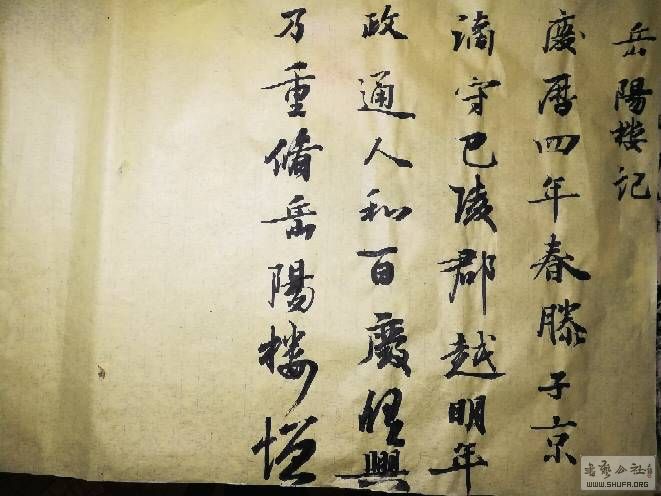 岳陽楼记
慶曆四年春滕子京
谪守巴陵郡越明年
政通人和百廢俱興
乃重脩岳陽樓增
书法公社
WWW.SHUFA.ORG